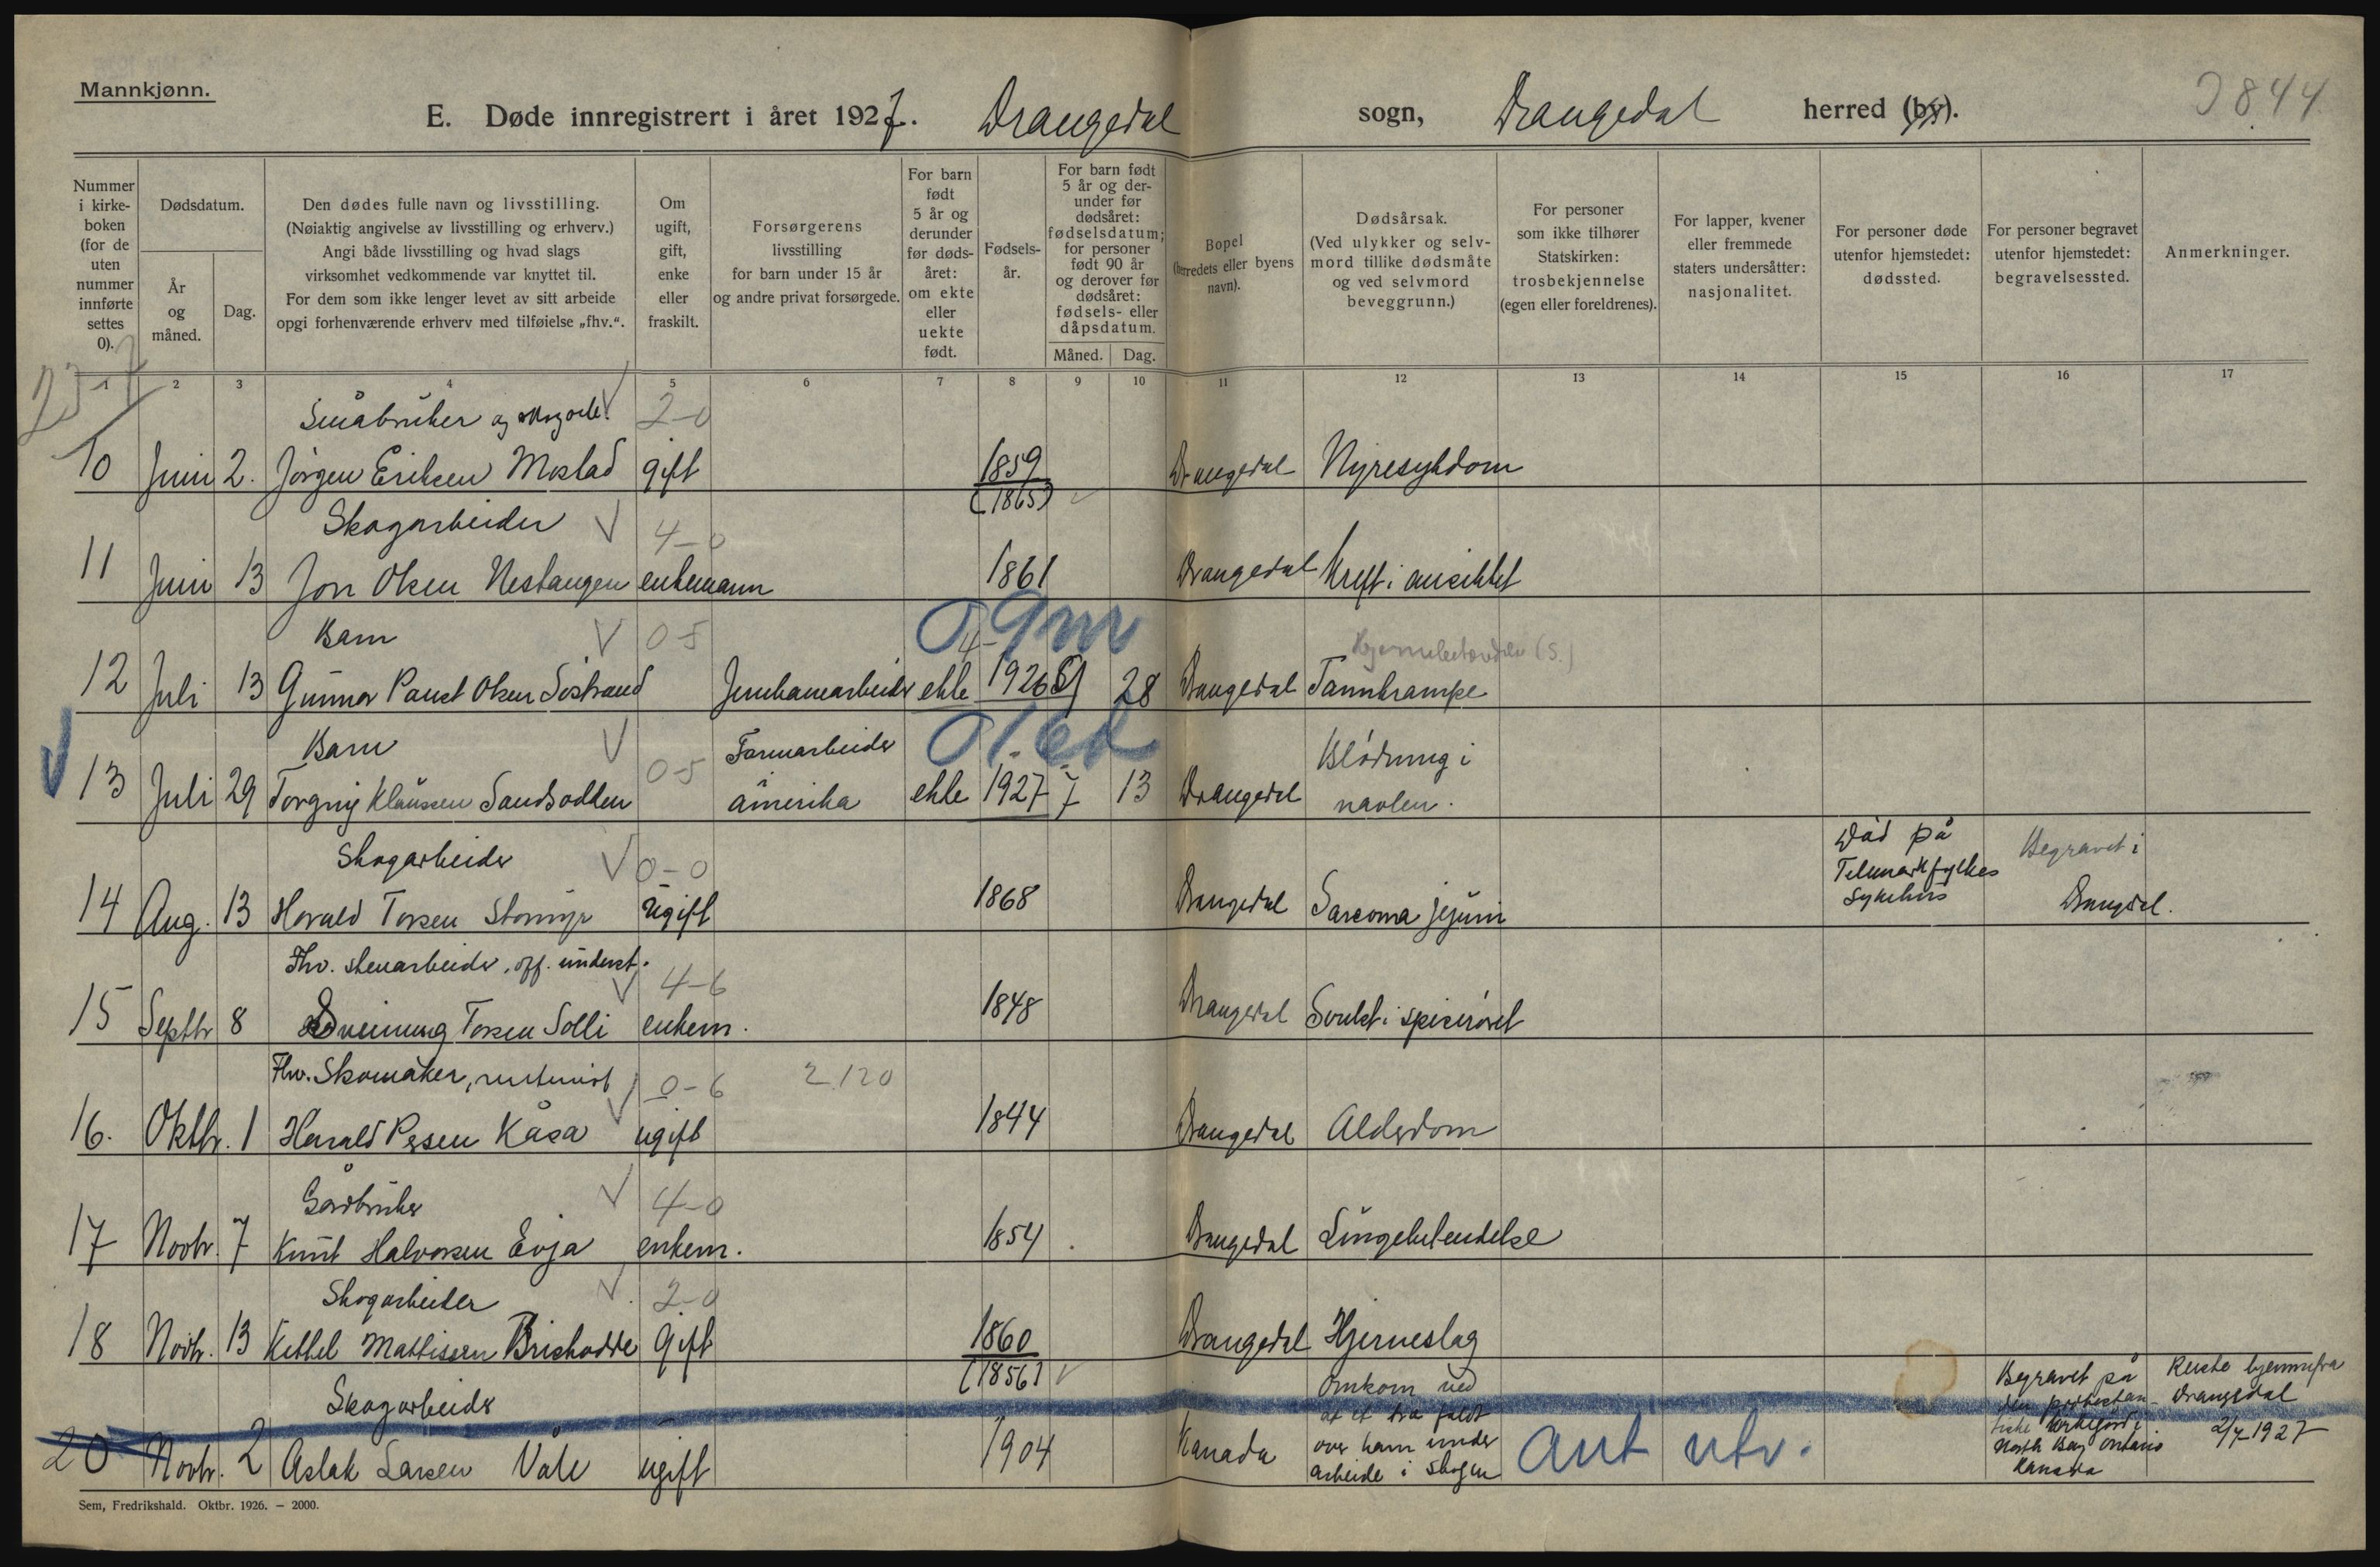 Mannkjønn.
E. Døde innregistrert i året 1927. Drangedal sogn, Drangedal herred (by).
2844
Nummer i kirkeboken (for de uten nummer innførte settes 0).
Dødsdatum.
År og måned.
Dag.
Den dødes fulle navn og livsstilling.
(Nøiaktig angivelse av livsstilling og erhverv.)
Angi både livsstilling og hvad slags
virksomhet vedkommende var knyttet til.
For dem som ikke lenger levet av sitt arbeide
opgi forhenværende erhverv med tilføielse „fhv.“.
Om ugift, gift, enke eller fraskilt.
Forsørgerens livsstilling for barn under 15 år og andre privat forsørgede.
For barn født 5 år og derunder før dødsåret: om ekte eller uekte født.
Fødselsår.
For barn født 5 år og derunder før dødsåret: fødselsdatum; for personer født 90 år og derover før dødsåret: fødsels- eller dåpsdatum.
Måned. Dag.
Bopel (herredets eller byens navn).
Dødsårsak.
(Ved ulykker og selvmord tillike dødsmåte og ved selvmord beveggrunn.)
For personer som ikke tilhører Statskirken: trosbekjennelse (egen eller foreldrenes).
For lapper, kvener eller fremmede staters undersåtter: nasjonalitet.
For personer døde utenfor hjemstedet: dødssted.
For personer begravet utenfor hjemstedet: begravelsessted.
Anmerkninger.
1 2 3 4 5 6 7 8 9 10 11 12 13 14 15 16 17
Småbruker og 2-0
10 Juni 2. Jörgen Eriksen Mostad gift 1859 Drangedal Nyresykdom
(1865)
Skogarbeider 4-0
11 Juni 13 Jon Olsen Nestangen enkemann 1861 Drangedal Kreft i ansiktet
Barn 0-5 0 9m
12 Juli 13 Gunnar Olsen Jernbanearbeider ekte 1926 28 Drangedal Tannkrampe
Barn 0-5 Farmarbeider Blödning i
13 Juli 29 Torgny Klausen Sandsodden Amerika ekte 1927 7 13 Drangedal navlen.
Skogarbeider 0-0 Död på Telemark fylkes Sykehus Begravet i Drangedal.
14 Aug. 13 Harald Torsen ugift 1868 Drangedal Sarcoma jejuni
Fhv. stenarbeider, off. underst. 4-6
15 Septbr 8 Sveinung Torsen Solli enkem. 1848 Drangedal Svulst i spiseröret
Fhv. Skomaker, 0-6 2.120
16. Oktbr. 1 Harald Kåsa ugift 1844 Drangedal Alderdom
Gårdbruker 4-0
17 Novbr. 7 Knut Halvorsen Evja enkem. 1854 Drangedal Lungebetendelse
Skogarbeider 2-0
18 Novbr. 13 Kittel Mattissen gift 1860 Drangedal Hjerneslag
(1856)
Skogarbeider
20 Novbr. 2 Aslak Larsen Våle ugift 1904 Kanada
Omkom ved
at et tre faldt
over ham under
arbeide i skogen
ant utv.
Begravet på
den protestan-
tiske kirkegård i
North Bay Ontario
Kanada
Reiste hjemmefra
Drangedal
2/4-1927
Sem, Fredrikshald. Oktbr. 1926. — 2000.